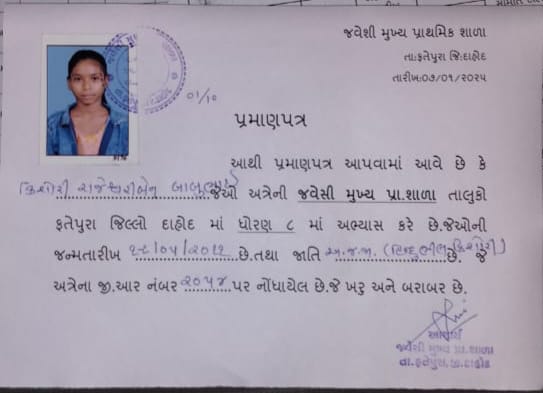 જવેશી મુખ્ય પ્રાથમિક શાળા
તા:ફતેપુરા જિ:દાહોદ
તારીખ:૦૭/૦૧/૨૦૨૫
૦૧/૧૦
પ્રમાણપત્ર
આથી પ્રમાણપત્ર આપવામાં આવે છે કે
કિશોરી રાજેશ્વરીબેન બાબુભાઈ જેઓ અત્રેની જવેસી મુખ્ય પ્રા.શાળા તાલુકો
ફતેપુરા જિલ્લો દાહોદ માં ધોરણ ૮ માં અભ્યાસ કરે છે.જેઓની
જન્મતારીખ /૦૫/૨૦૧૧ છે.તથા જાતિ અ.જ.જા. (હિન્દુ ભીલ કિશોરી) છે. જે
અત્રેના જી.આર નંબર ૨૦૫૪ પર નોંધાયેલ છે.જે ખરુ અને બરાબર છે.
આચાર્ય
જવેશી મુખ્ય પ્રા.શાળા
તા.ફતેપુરા,જી.દાહોદ